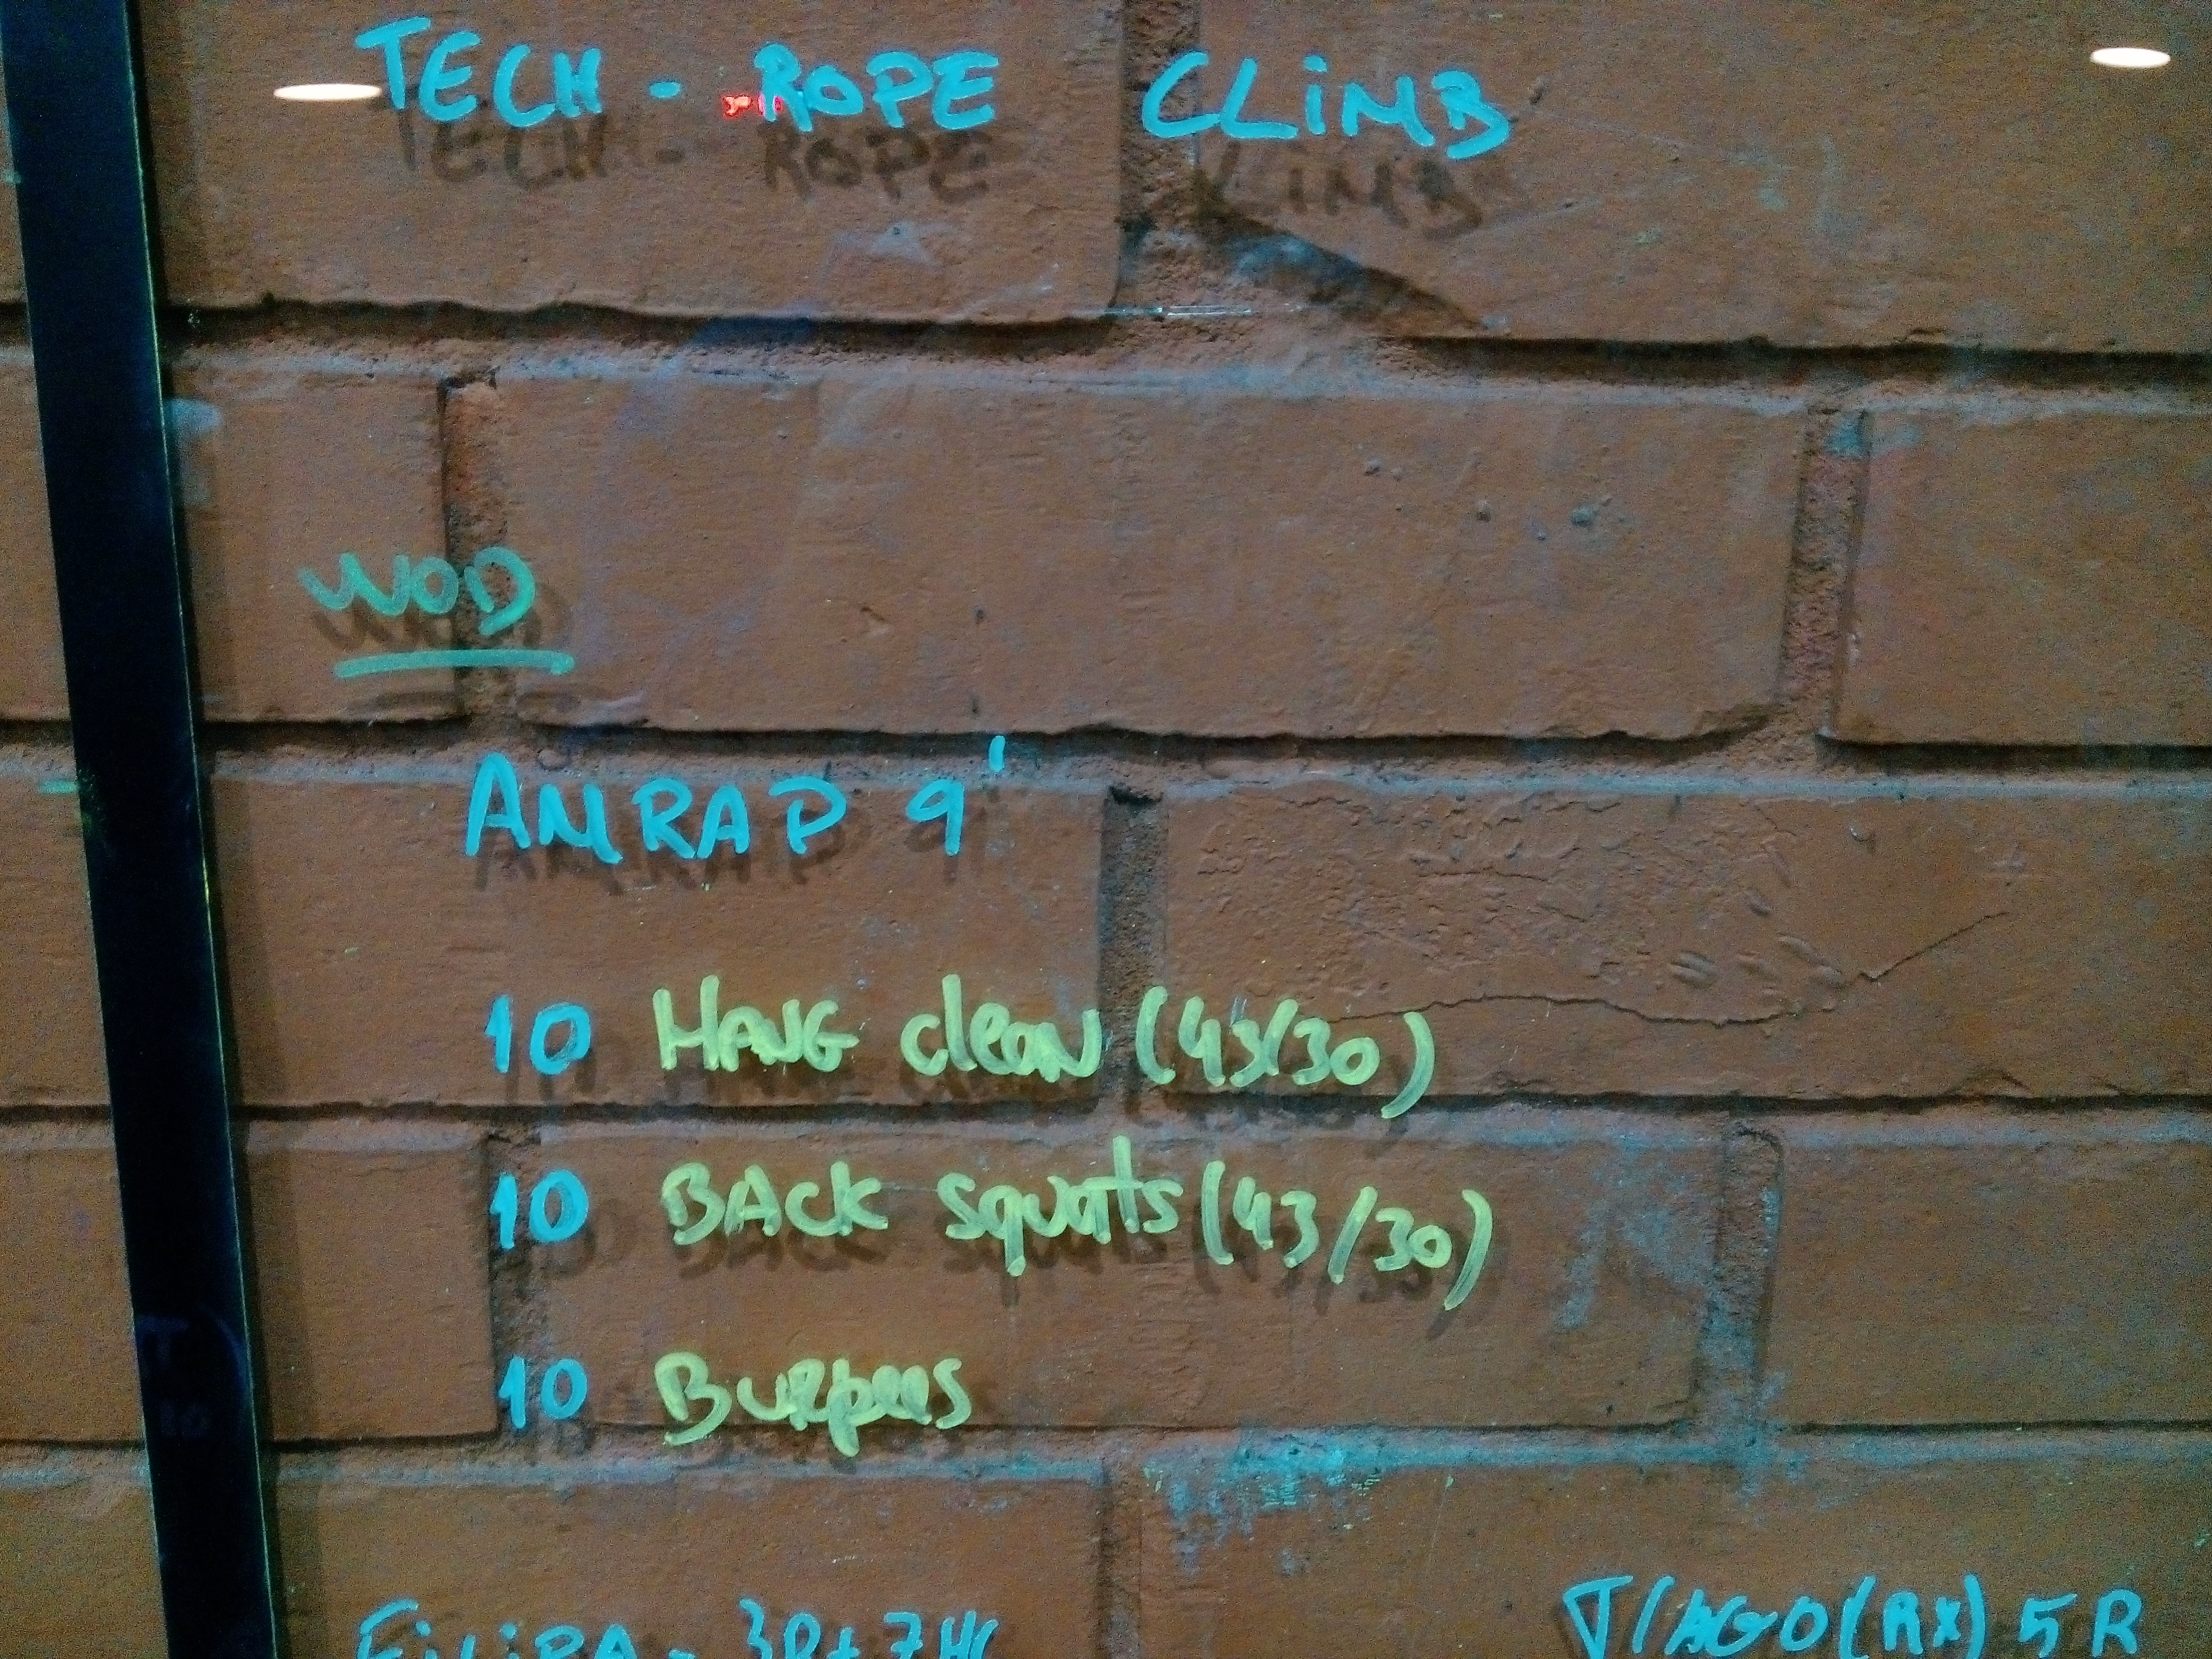 TECH - ROPE CLIMB
WOD
AMRAP 9'
10 HANG clean (43/30)
10 BACK squats (43/30)
10 Burpees
FiLiPA - 3R+7HC
TIAGO (RX) 5R